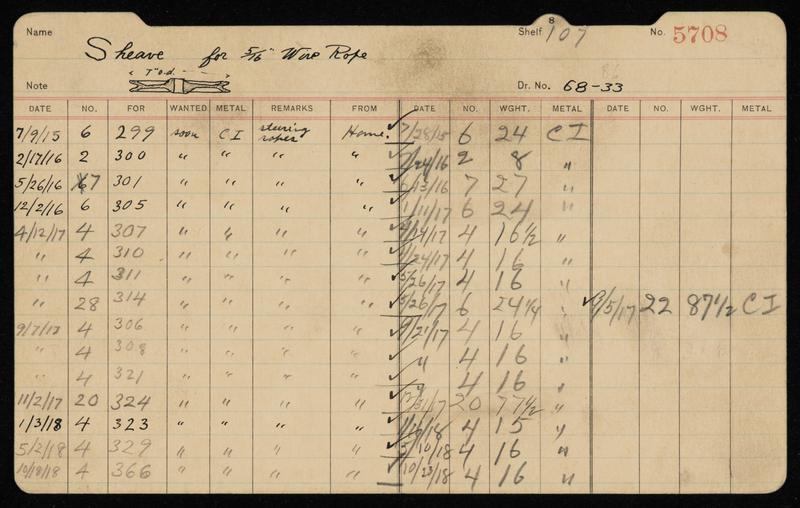 Name Sheave for 5/16" Wire Rope Shelf 107 8 No. 5708
Note "7" o.d. Dr. No. 68-33
DATE NO. FOR WANTED METAL REMARKS FROM DATE NO. WGHT. METAL DATE NO. WGHT. METAL
7/9/15 6 299 soon CI steering ropes Home. ✓ 7/28/15 6 24 CI
2/17/16 2 300 " " " " ✓ 2/24/16 2 8 "
5/26/16 7 301 " " " " ✓ 6/13/16 7 27 "
12/2/16 6 305 " " " " ✓ 1/11/17 6 24 "
4/12/17 4 307 " " " " ✓ 4/14/17 4 16 1/2 "
" 4 310 " " " " ✓ /24/17 4 16 "
" 4 311 " " " " ✓ 5/26/17 4 16 "
" 28 314 " " " " ✓ 5/26/17 6 24 1/4 " ✓ /5/17 22 87 1/2 CI
9/7/17 4 306 " " " " ✓ 9/21/17 4 16 "
" 4 308 " " " " ✓ " 4 16 "
" 4 321 " " " " ✓ " 4 16 "
11/2/17 20 324 " " " " ✓ 12/31/17 20 77 1/2 "
1/3/18 4 323 " " " " ✓ 1/10/18 4 15 "
5/2/18 4 329 " " " " ✓ 5/10/18 4 16 "
10/18/18 4 366 " " " " ✓ 10/23/18 4 16 "